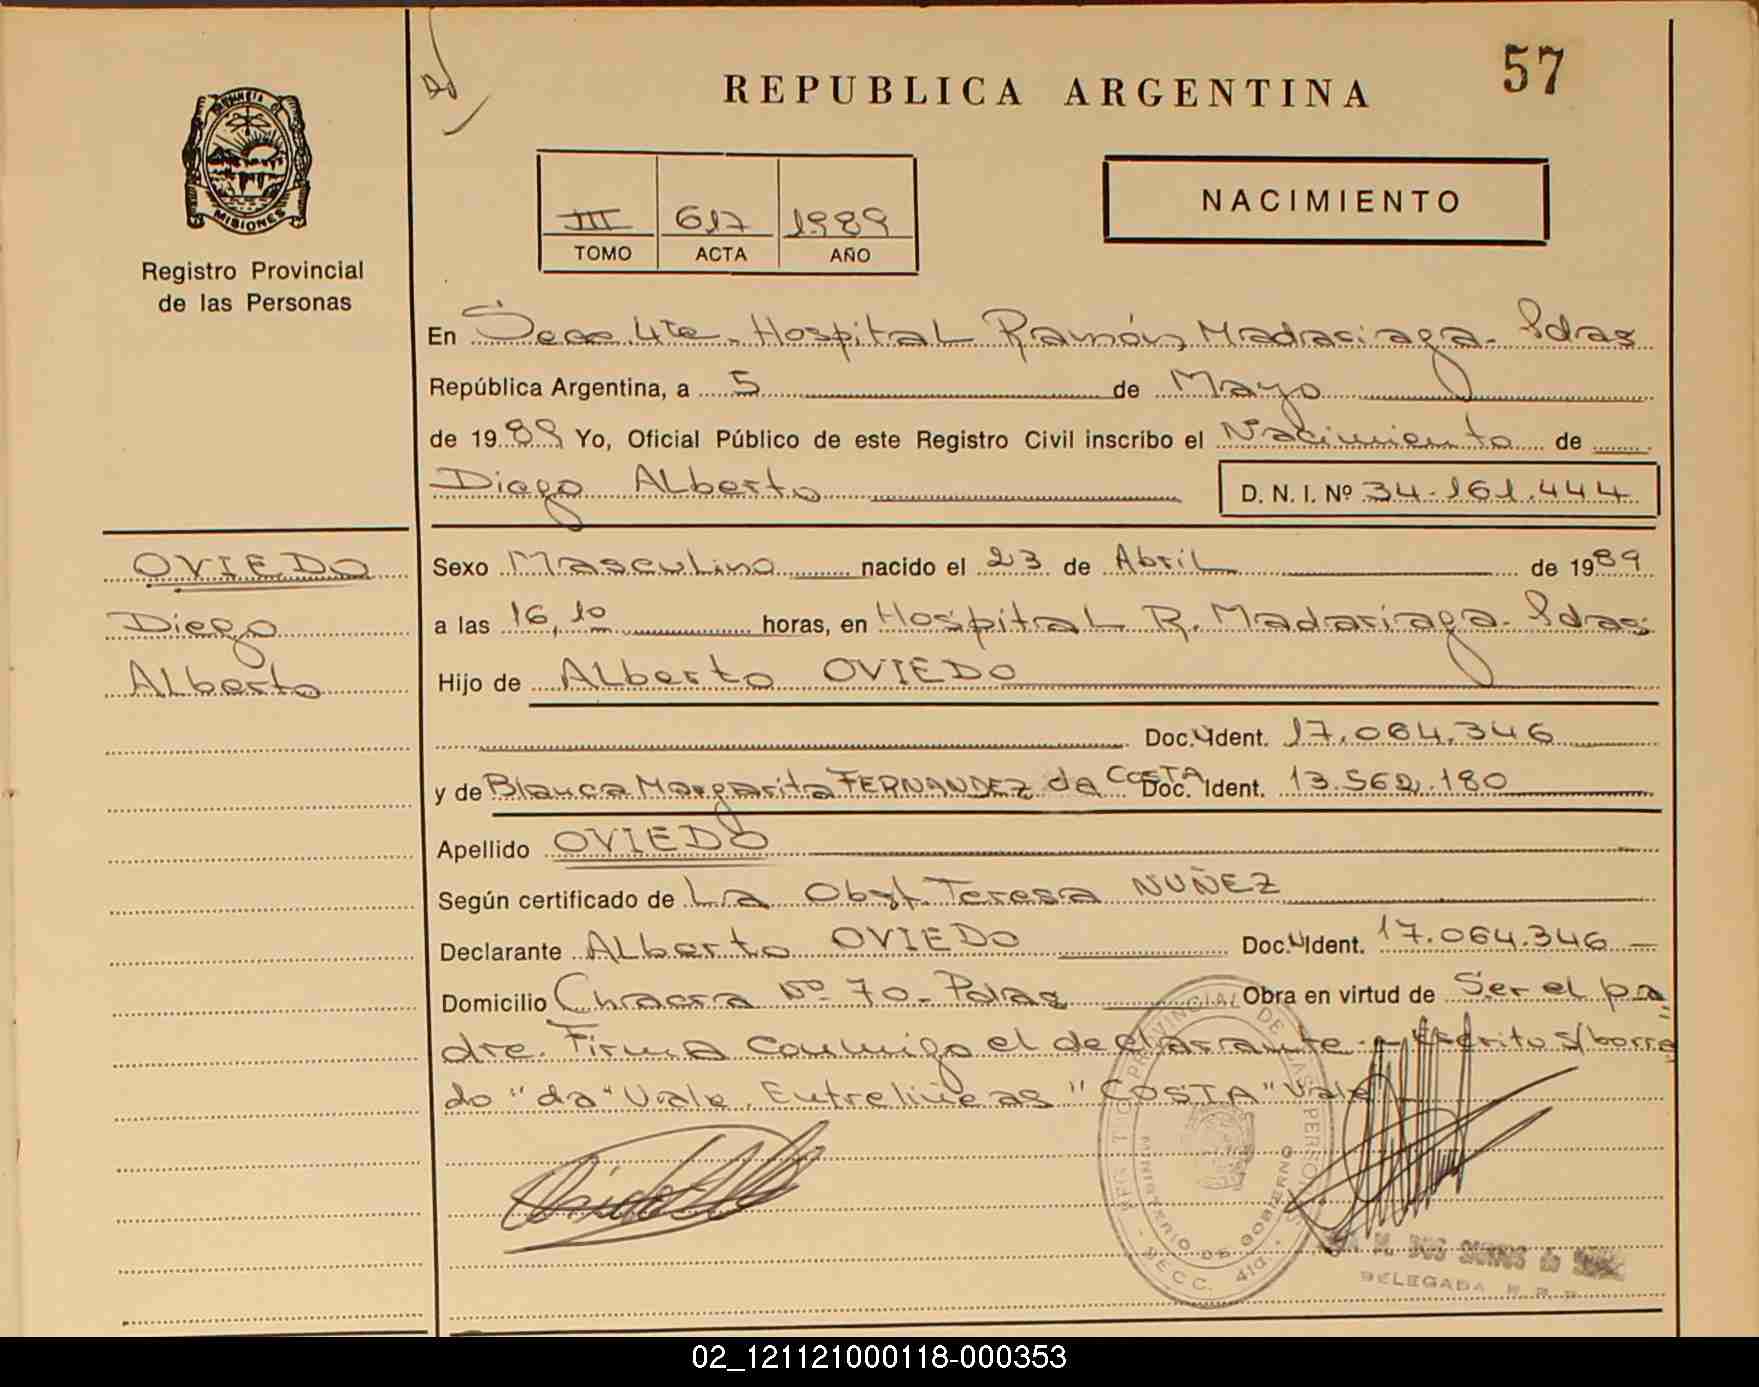 57
REPUBLICA ARGENTINA
PROVINCIA DE
MISIONES
Registro Provincial
de las Personas
III 617 1989
TOMO ACTA AÑO
NACIMIENTO
En Secc. 4ta. Hospital Ramón Madariaga - Pdas
República Argentina, a 5 de Mayo
de 1989 Yo, Oficial Público de este Registro Civil inscribo el Nacimiento de
Diego Alberto D. N. I. Nº 34.161.444
OVIEDO
Diego
Alberto
Sexo Masculino nacido el 23 de Abril de 1989
a las 16,10 horas, en Hospital R. Madariaga - Pdas
Hijo de Alberto OVIEDO
Doc. Ident. 17.064.346
y de Blanca Margarita FERNANDEZ da COSTA Doc. Ident. 13.562.180
Apellido OVIEDO
Según certificado de La Obst. Teresa NUÑEZ
Declarante Alberto OVIEDO Doc. Ident. 17.064.346
Domicilio Chacra Nº 70 - Pdas Obra en virtud de Ser el pa-
dre. Firma conmigo el declarante.- Escrito s/borra
do "da" Vale. Entrelineas "COSTA" Vale
PROVINCIAL DE LAS PERSONAS
MINISTERIO DE GOBIERNO
SECC. 4ta.
DELEGADA
02_121121000118-000353